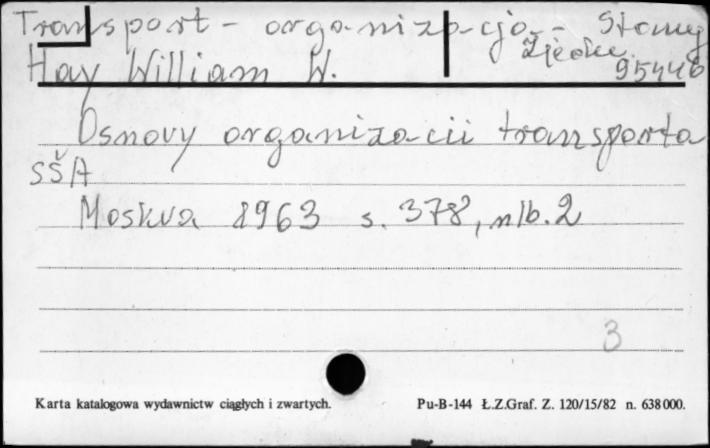 Transport - organizacja - Stany
Zjedn.
Hay William W. 95446
Osnovy organizacii transporta
SŠA
Moskva 1963 s. 378, nlb. 2
3
Karta katalogowa wydawnictw ciągłych i zwartych. Pu-B-144 Ł.Z.Graf. Z. 120/15/82 n. 638 000.